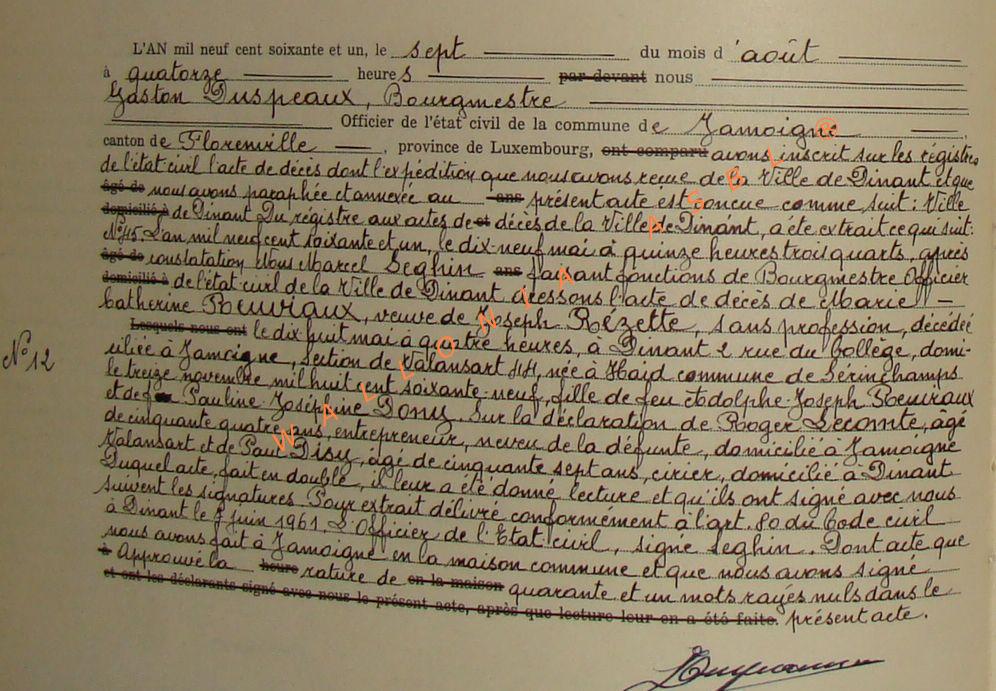 L'AN mil neuf cent soixante et un, le sept du mois d'août
à quatorze heures par devant nous
Gaston Duspeaux, Bourgmestre
Officier de l'état civil de la commune de Jamoigne,
canton de Florenville, province de Luxembourg, ont comparu avons inscrit sur les régistres
de l'état civil l'acte de décès dont l'expédition que nous avons recue de la Ville de Dinant et que
âgé de nous avons paraphée et annexée au ans présent acte est concue comme suit: Ville
domicilié à de Dinant Du régistre aux actes de et décès de la Ville de Dinant, a éte extrait ce qui suit:
N°45. L'an mil neuf cent soixante et un, le dix-neuf mai à quinze heures trois quarts, après
âgé de constatation Nous Marcel Seghin ans faisant fonctions de Bourgmestre Officier
domicilié à de l'état civil de la Ville de Dinant dressons l'acte de décès de Marie
Catherine Roeuviaux, veuve de Joseph Rézette, sans profession, décédée
Lesquels nous ont le dix huit mai à quatre heures, à Dinant 2 rue du Collège, domi-
N° 12
ciliée à Jamoigne, section de Valansart 44, née à Haid commune de Serinchamps
le treize novembre mil huit cent soixante-neuf, fille de feu Adolphe-Joseph Roeuviaux
et de Pauline-Joséphine Dony. Sur la déclaration de Roger Lecomte, âgé
de cinquante quatre ans, entrepreneur, neveu de la défunte, domicilié à Jamoigne
Valansart et de Paul Disy, âgé de cinquante sept ans, cirier, domicilié à Dinant
Duquel acte, fait en double, il leur a été donné lecture et qu'ils ont signé avec nous
suivent les signatures. Pour extrait délivré conformément à l'art. 80 du Code civil
à Dinant le juin 1961. L'Officier de l'Etat civil, signé Seghin. Dont acte que
nous avons fait à Jamoigne en la maison commune et que nous avons signé
à Approuvé la heure rature de en la maison quarante et un mots rayés nuls dans le
et ont les déclarants signé avec nous le présent acte, après que lecture leur en a été faite. présent acte.
WALLONIA ASBL ®